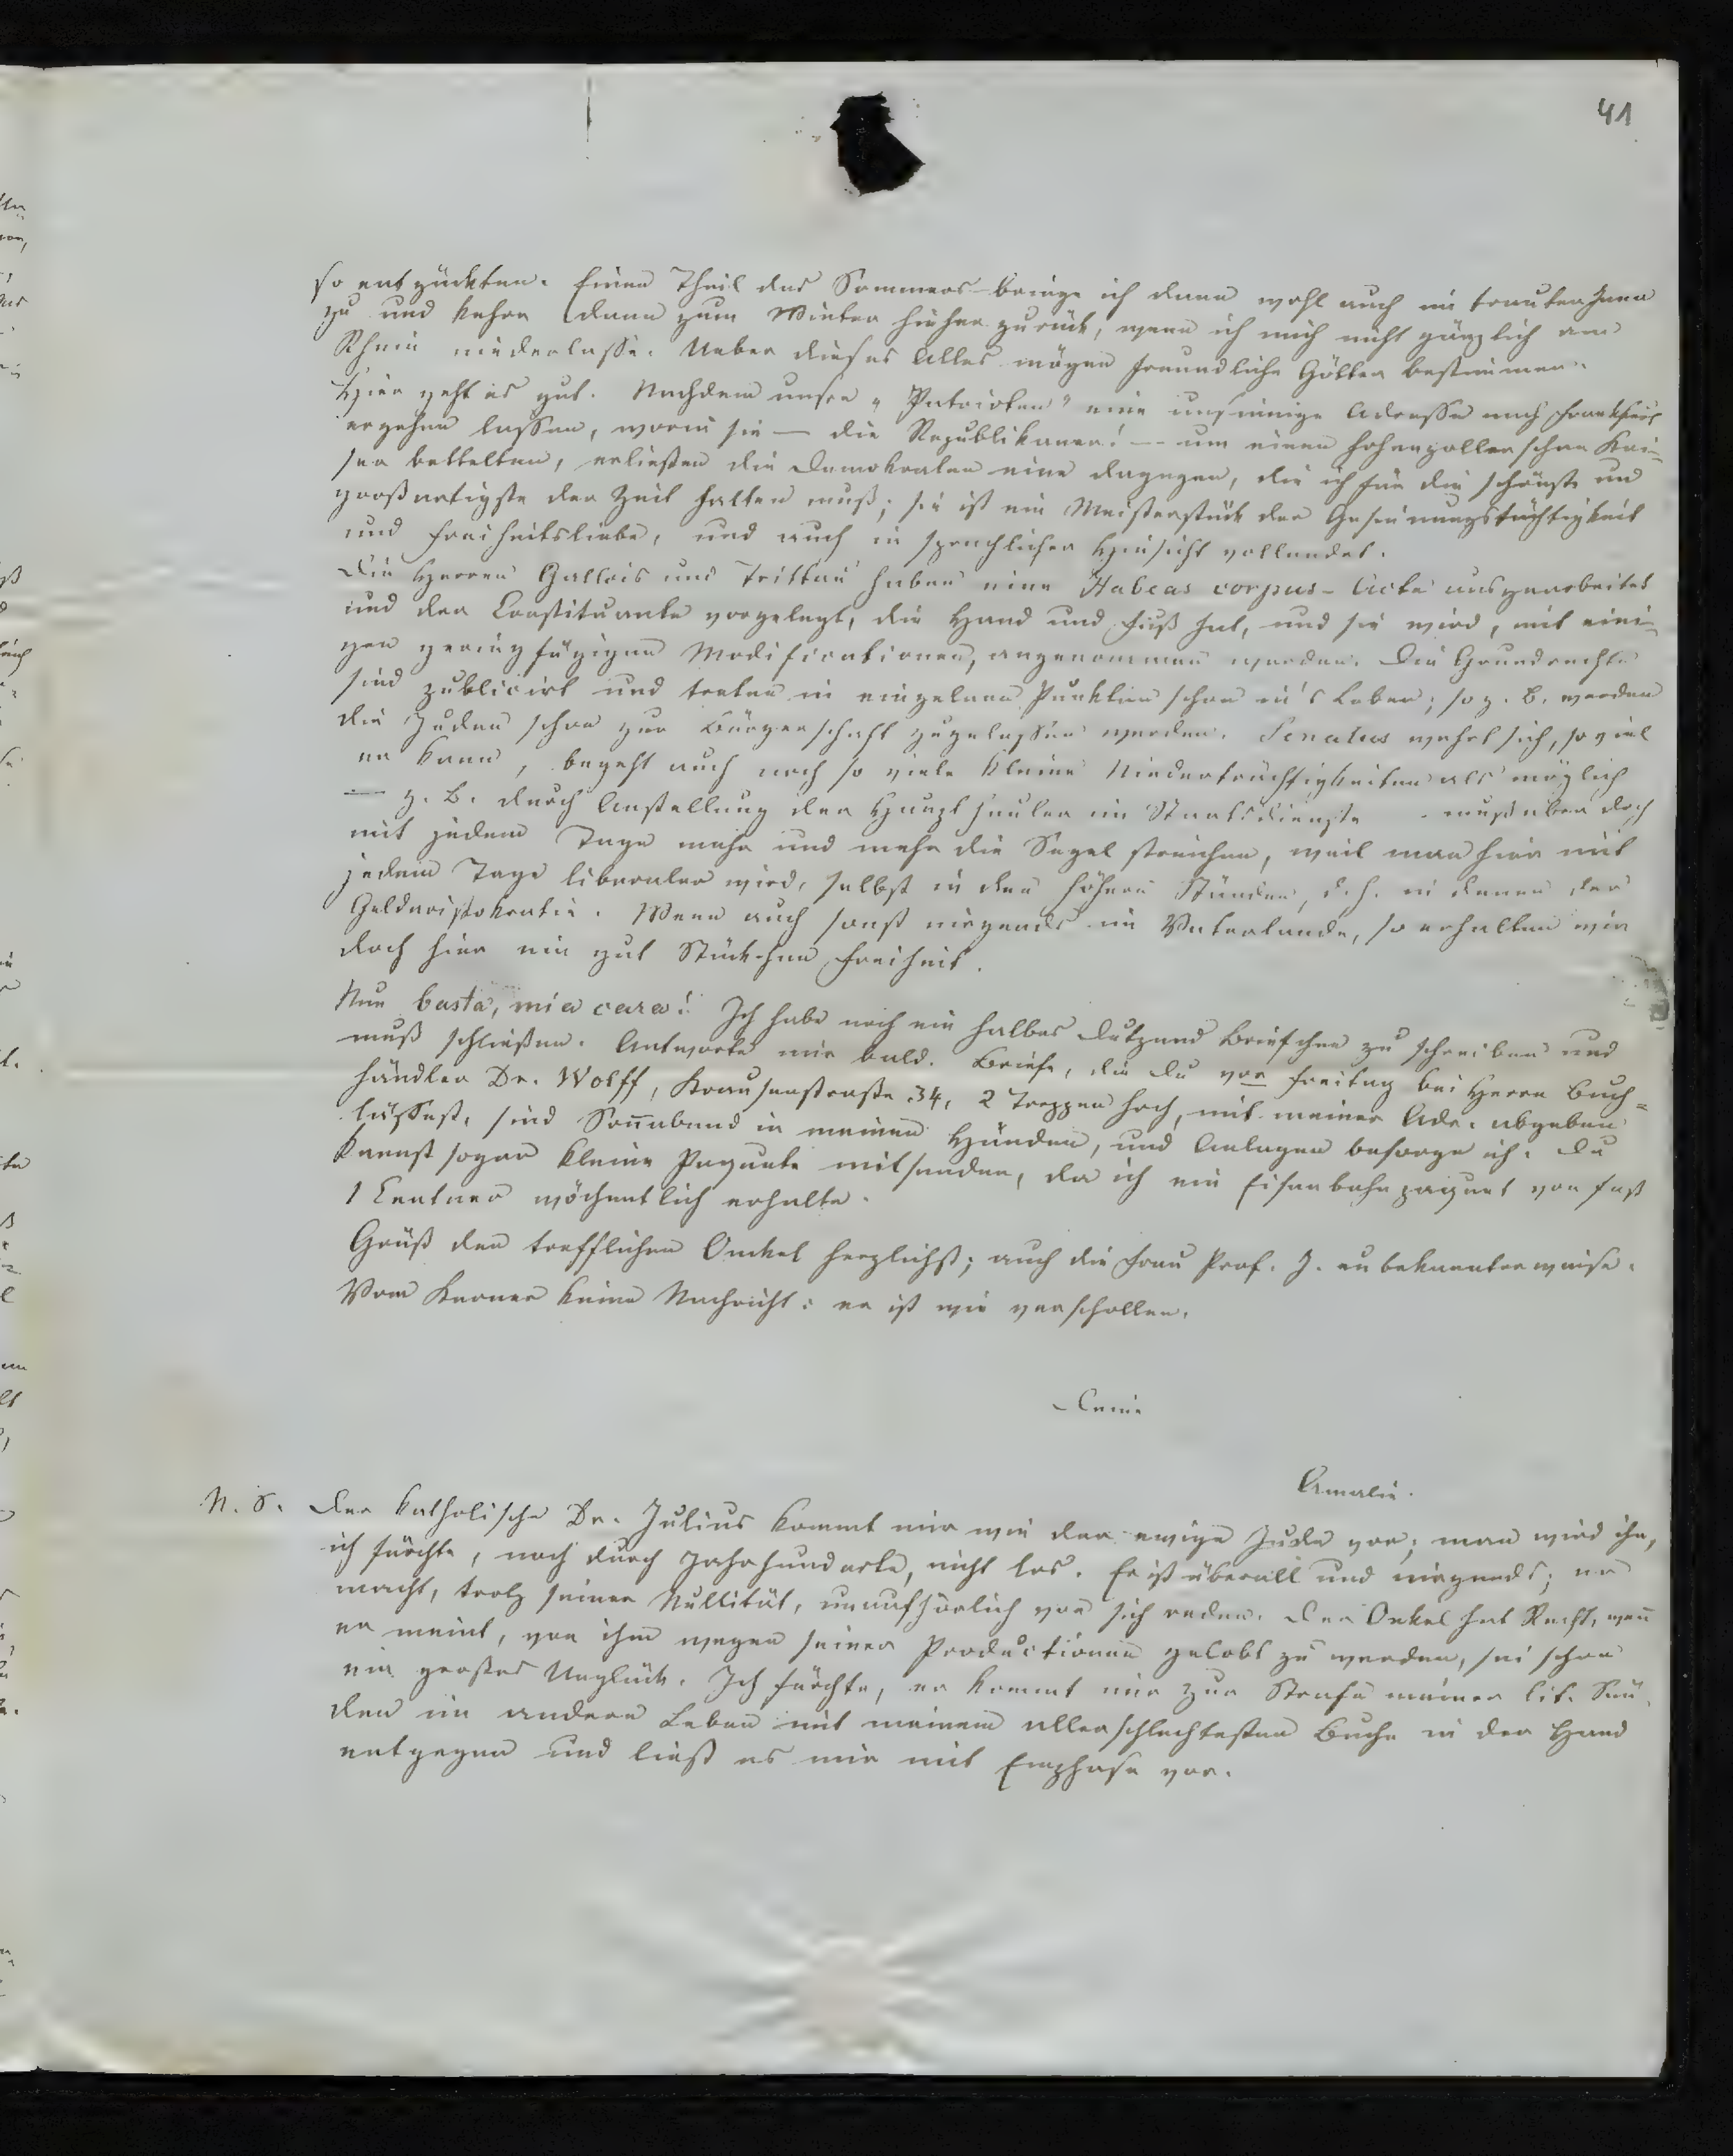 41
so entzückten. Einen Theil des Sommers bringe ich dann wohl auch im trauten Jena
zu und kehre dann zum Winter hieher zurück, wenn ich mich nicht gänzlich am
Rhein niederlasse. Ueber dieses Alles mögen freundliche Götter bestimmen.
Hier geht es gut. Nachdem unsre „Patrioten" eine unsinnige Adresse nach Frankfurt
ergehen lassen, worin sie — die Republikaner! — um einen hohenzollerschen Kai-
ser bettelten, erließen die Demokraten eine dagegen, die ich für die schönste und
großartigste der Zeit halten muß; sie ist ein Meisterstück der Gesinnungstüchtigkeit
und Freiheitsliebe, und auch in sprachlicher Hinsicht vollendet.
Die Herren Gallois und Trittau haben eine Habeas corpus-Acte ausgearbeitet
und der Constituante vorgelegt, die Hand und Fuß hat, und sie wird, mit eini-
gen geringfügigen Modificationen, angenommen werden. Die Grundrechte
sind publicirt und treten in einzelnen Punkten schon in's Leben; so z. B. werden
die Juden schon zur Bürgerschaft zugelassen werden. Senatus wehrt sich, so viel
er kann, begeht auch noch so viele kleine Niederträchtigkeiten als möglich
— z. B. durch Anstellung der Haupt heuler im Staatsdienste - muß aber doch
mit jedem Tage mehr und mehr die Segel streichen, weil man hier mit
jedem Tage liberaler wird, selbst in den höhern Ständen, d. h. in denen der
Geldaristokratie. Wenn auch sonst nirgends im Vaterlande, so erhalten wir
doch hier ein gut Stückchen Freiheit.
Nun basta, mia cara! Ich habe noch ein halbes Dutzend Briefchen zu schreiben und
muß schließen. Antworte mir bald. Briefe, die Du vor Freitag bei Herrn Buch=
händler Dr. Wolff, Krausenstraße 34, 2 Treppen hoch, mit meiner Adr. abgeben
lässest, sind Soñabend in meinen Händen, und Anlagen besorge ich. Du
kannst sogar kleine Paquete mitsenden, da ich ein Eisenbahnpaquet von fast
1 Centner wöchentlich erhalte.
Grüß den trefflichen Onkel herzlichst; auch die Frau Prof. J. unbekannterweise.
Vom Kerner keine Nachricht: er ist wie verschollen.
Deine
Amalie.
N. S. Der katholische Dr. Julius kommt mir wie der ewige Jude vor; man wird ihn,
ich fürchte, noch durch Jahrhunderte, nicht los. Er ist überall und nirgends; er
macht, trotz seiner Nullität, unaufhörlich von sich reden. Der Onkel hat Recht, weñ
er meint, von ihm wegen seiner Productionen gelobt zu werden, sei schon
ein großes Unglück. Ich fürchte, er kommt mir zur Strafe meiner lit. Sün-
den im andern Leben mit meinem allerschlechtesten Buche in der Hand
entgegen und ließt es mir mit Emphase vor.